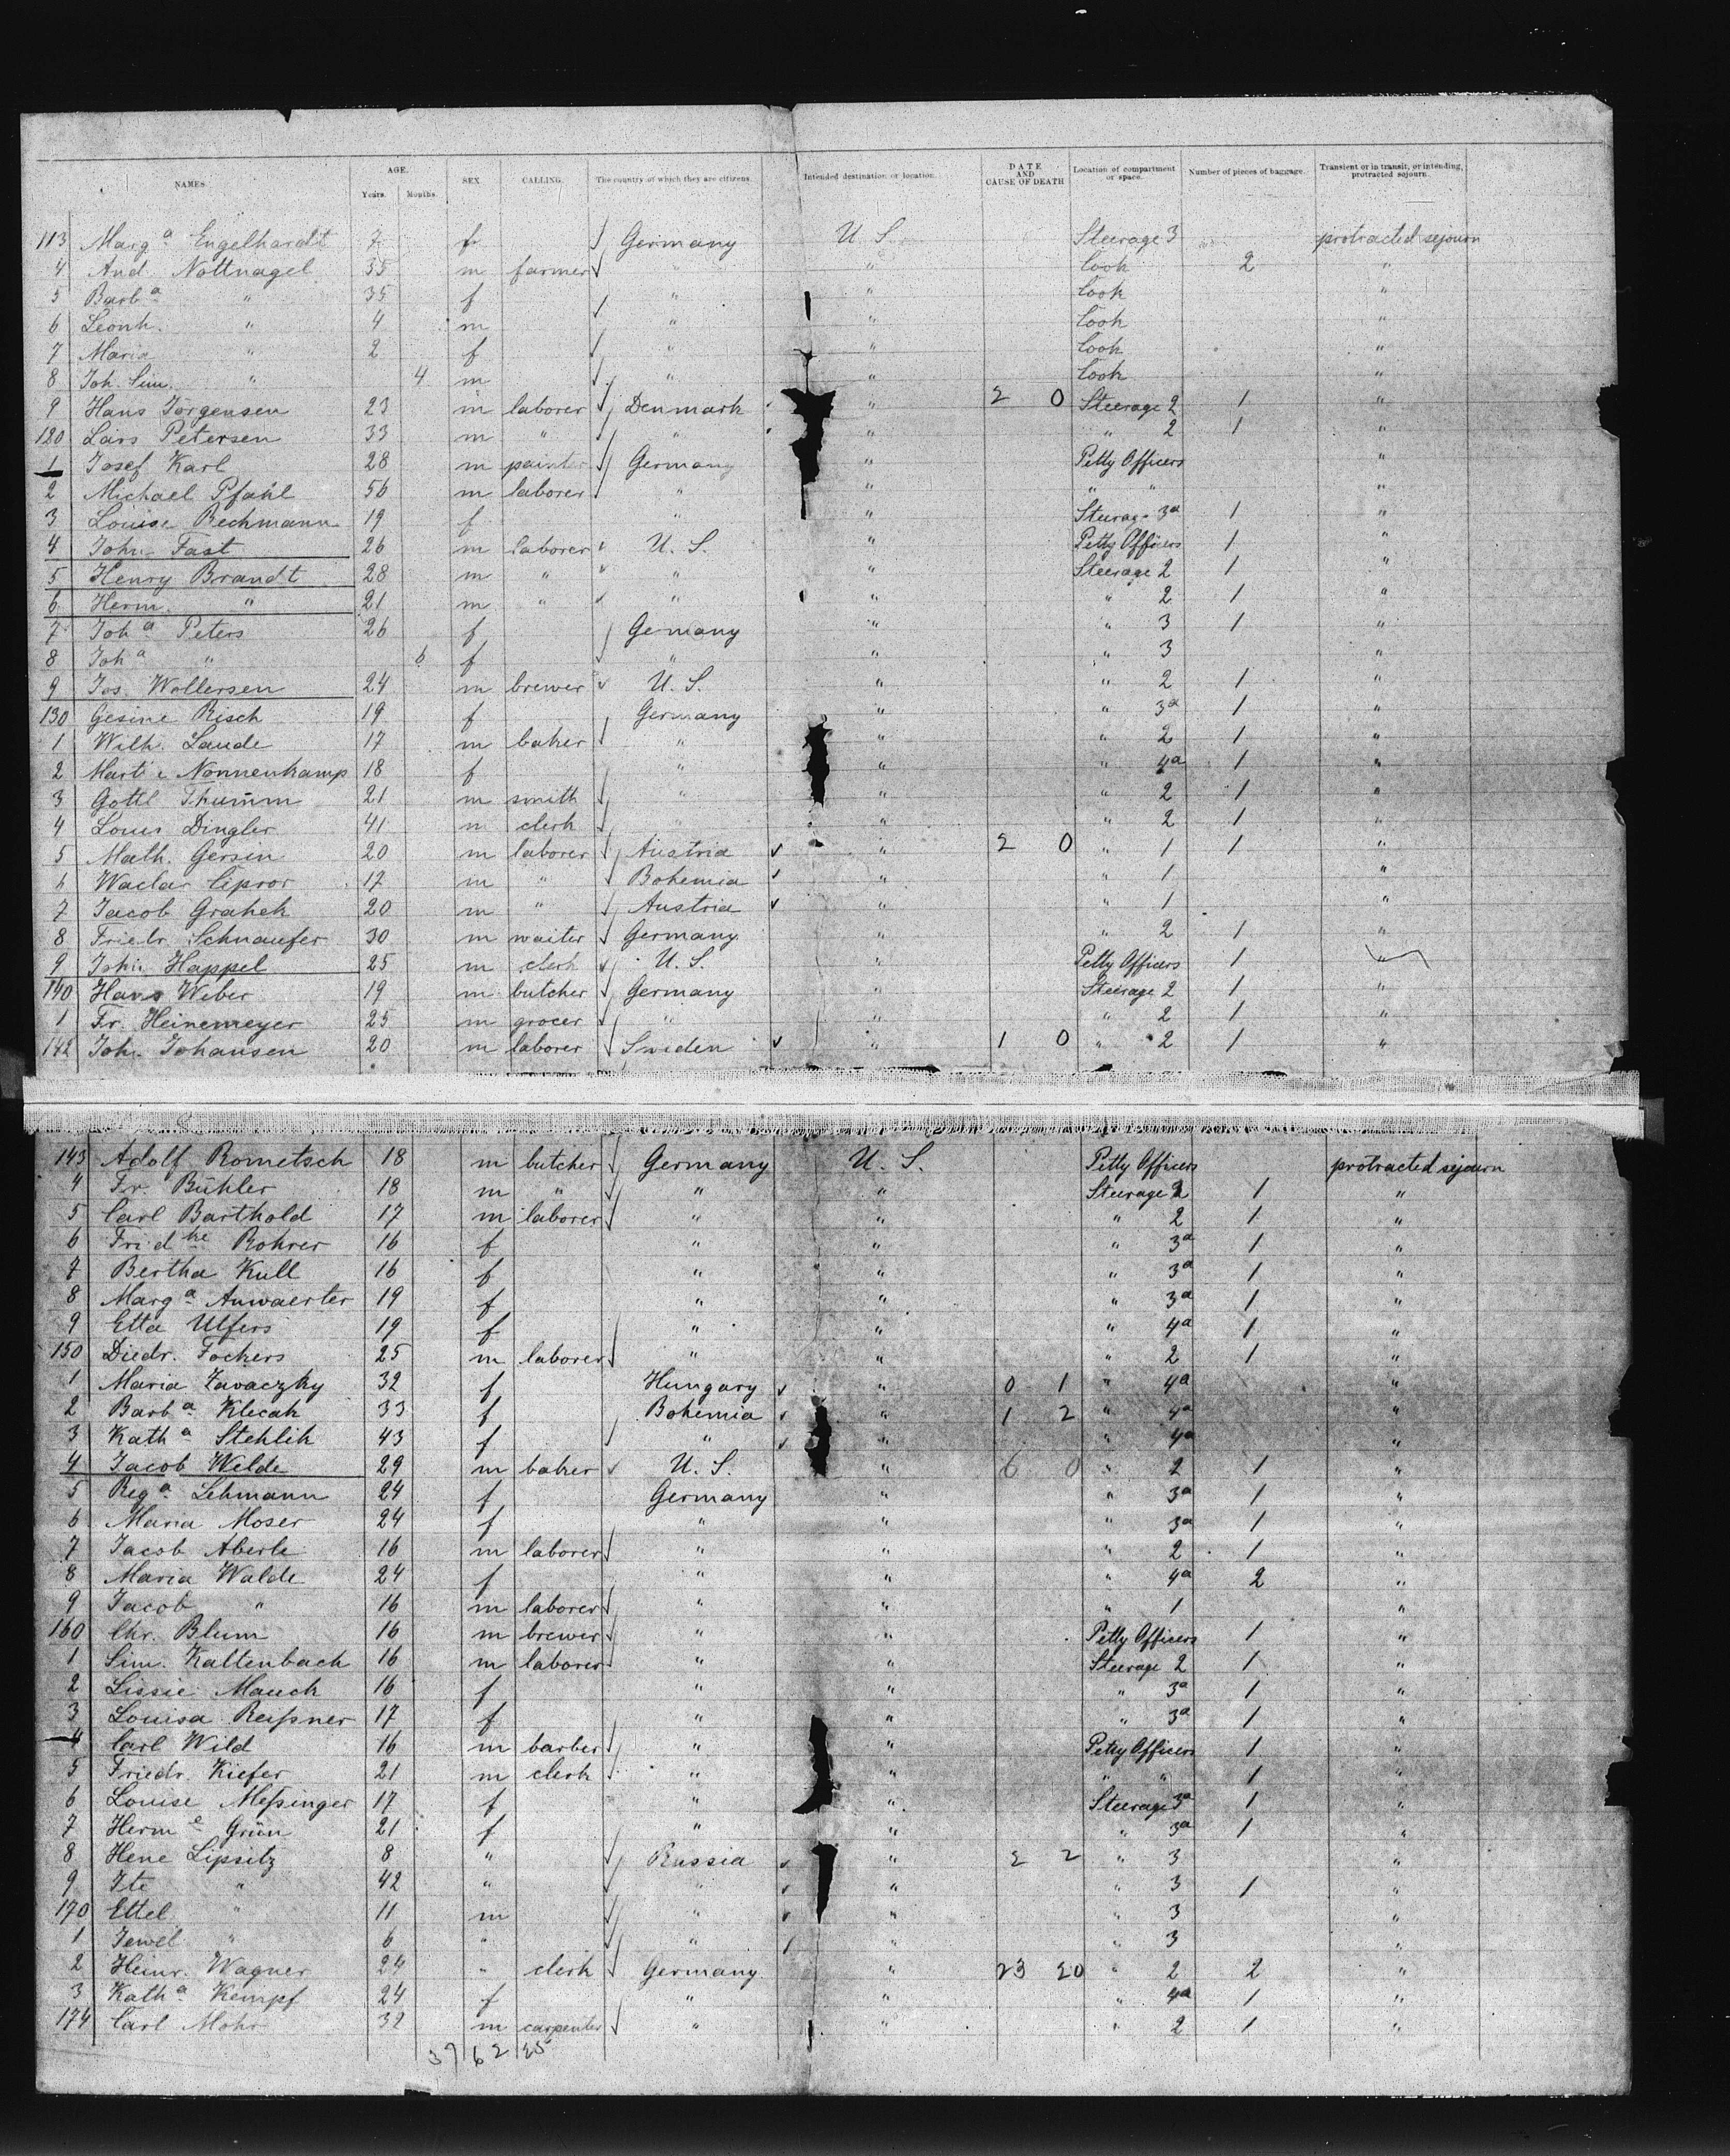 NAMES. AGE. Years. Months. SEX. CALLING. The country of which they are citizens. Intended destination or location. DATE AND CAUSE OF DEATH Location of compartment or space. Number of pieces of baggage. Transient or in transit, or intending, protracted sojourn.
113 Marg a Engelhardt 7 f Germany U S Steerage 3 protracted sejourn
4 And. Nottnagel 35 m farmer " " Cook 2 "
5 Barb a " 35 f " " Cook "
6 Leonh. " 4 m " " Cook "
7 Maria " 2 f " " Cook "
8 Joh. Sim. " 4 m " " Cook "
9 Hans Jörgensen 23 m laborer Denmark " 2 0 Steerage 2 1 "
120 Lars Petersen 33 m " " " " 2 1 "
1 Josef Karl 28 m painter Germany " Petty Officers "
2 Michael Pfahl 56 m laborer " " " " "
3 Louise Bechmann 19 f " " Steerage 3a 1 "
4 John Fast 26 m laborer U. S. " Petty Officers 1 "
5 Henry Brandt 28 m " " " Steerage 2 1 "
6 Herm. " 21 m " " " " 2 1 "
7 Joh a Peters 26 f Germany " " 3 1 "
8 Joh a " 6 f " " " 3 "
9 Jos. Wollersen 24 m brewer U. S. " " 2 1 "
130 Gesine Risch 19 f Germany " " 3a 1 "
1 Wilh. Laude 17 m baker " " " 2 1 "
2 Nonnenkamp 18 f " " " 4a 1 "
3 Gottl Thumm 21 m smith " " " 2 1 "
4 Louis Dingler 41 m clerk " " " 2 1 "
5 Math. Gersin 20 m laborer Austria " 2 0 " 1 1 "
6 Waclav 17 m " Bohemia " " 1 "
7 Jacob Grahek 20 m " Austria " " 1 "
8 Friedr. Schnaufer 30 m waiter Germany " " 2 1 "
9 John Happel 25 m clerk U. S. " Petty Officers 1 "
140 Hans Weber 19 m butcher Germany " Steerage 2 1 "
1 Fr. Heinemeyer 25 m grocer " " " 2 1 "
142 Joh. Johansen 20 m laborer Sweden " 1 0 " 2 1 "
143 Adolf Rometsch 18 m butcher Germany U. S. Petty Officers protracted sejourn
4 Fr. Bühler 18 m " " " Steerage 2 1 "
5 Carl Barthold 17 m laborer " " " 2 1 "
6 Frid ke Rohrer 16 f " " " 3a 1 "
7 Bertha Kull 16 f " " " 3a 1 "
8 Marg a Anwaerter 19 f " " " 3a 1 "
9 Etta Ulfers 19 f " " " 4a 1 "
150 Diedr. Fockers 25 m laborer " " " 2 1 "
1 Maria Zavaczky 32 f Hungary " 0 1 " 4a "
2 Barb a Klecak 33 f Bohemia " 1 2 " 4a "
3 Kath a Stehlik 43 f " " " 4a "
4 Jacob Welde 29 m baker U. S. " 6 0 " 2 1 "
5 Reg a Lehmann 24 f Germany " " 3a 1 "
6 Maria Moser 24 f " " " 3a 1 "
7 Jacob Aberle 16 m laborer " " " 2 1 "
8 Maria Walde 24 f " " " 4a 2 "
9 Jacob " 16 m laborer " " " 1 "
160 Chr. Blum 16 m brewer " " Petty Officers 1 "
1 Sim. Kaltenbach 16 m laborer " " Steerage 2 1 "
2 Lissie Mauch 16 f " " " 3a 1 "
3 Louisa Reißner 17 f " " " 3a 1 "
4 Carl Wild 16 m barber " " Petty Officers 1 "
5 Friedr. Kiefer 21 m clerk " " " " 1 "
6 Louise Meßinger 17 f " " Steerage 3a 1 "
7 Herm e Grün 21 f " " " 3a 1 "
8 Hene Lipsitz 8 " Russia " 2 2 " 3 "
9 Ite " 42 " " " " 3 1 "
170 Ettel " 11 m " " " 3 "
1 Jewel " 6 " " " " 3 "
2 Heinr. Wagner 24 " clerk Germany " 23 20 " 2 2 "
3 Kath a Kempf 24 f " " " 4a 1 "
174 Carl Mohr 32 m carpenter " " " 2 1 "
37 62 25